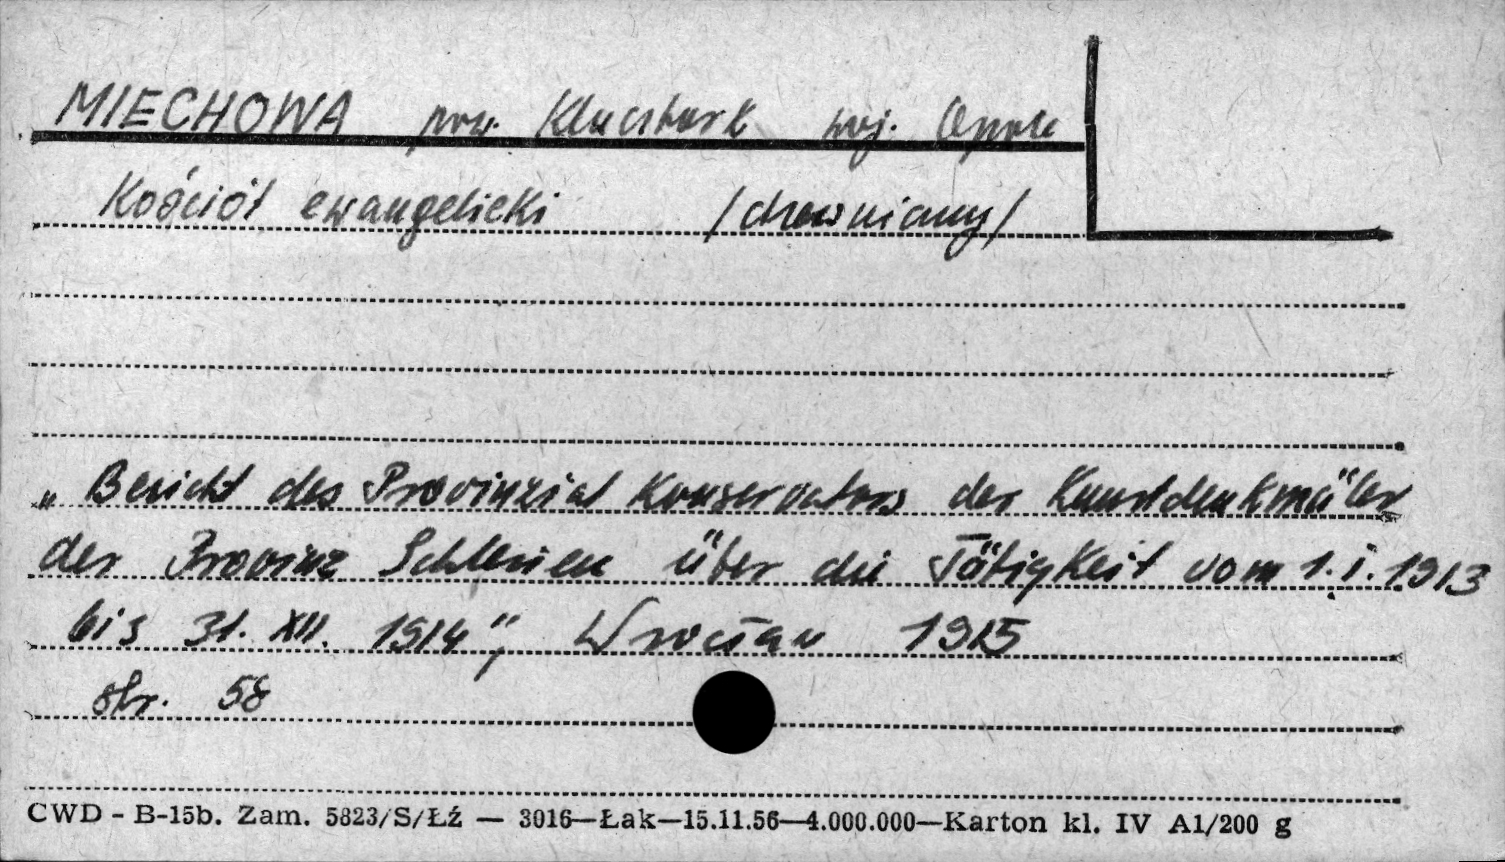 MIECHOWA pow. Kluczbork woj. Opole
Kościół ewangelicki /drewniany/
„Bericht des Provinzial Konservators der Kunstdenkmäler
der Provinz Schlesien über die Tätigkeit vom 1.I.1913
bis 31. XII. 1914", Wrocław 1915
str. 58
CWD - B-15b. Zam. 5823/S/Łź — 3016—Łak—15.11.56—4.000.000—Karton kl. IV A1/200 g